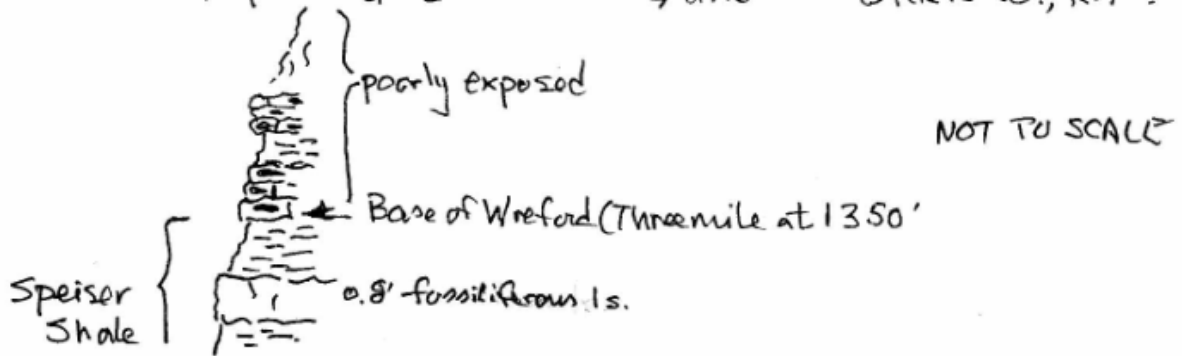 poorly exposed
NOT TO SCALE
Base of Wreford (Threemile at 1350'
Speiser Shale
0.8' fossiliferous ls.